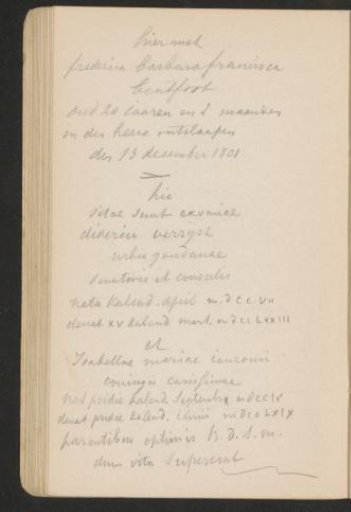 hier rust
frederica barbara francisca
Centfoot
oud 20 iaaren en 8 maanden
in den heere ontslaapen
den 13 december 1801
hic
sitae sunt exuviae
diderici verijst
urbis goudanae
senatoris et consulis
nati kalend. april. m.d.c.c.VII
denat XV kalend mart. mdccLXXIII
et
Isabellae mariae
coniugis carissimae
nat pridie kalend. septembr mdccIV
denat pridie kalend. iunii mdccLXIX
parentibus optimis B. d. S. m.
dum vita supererat